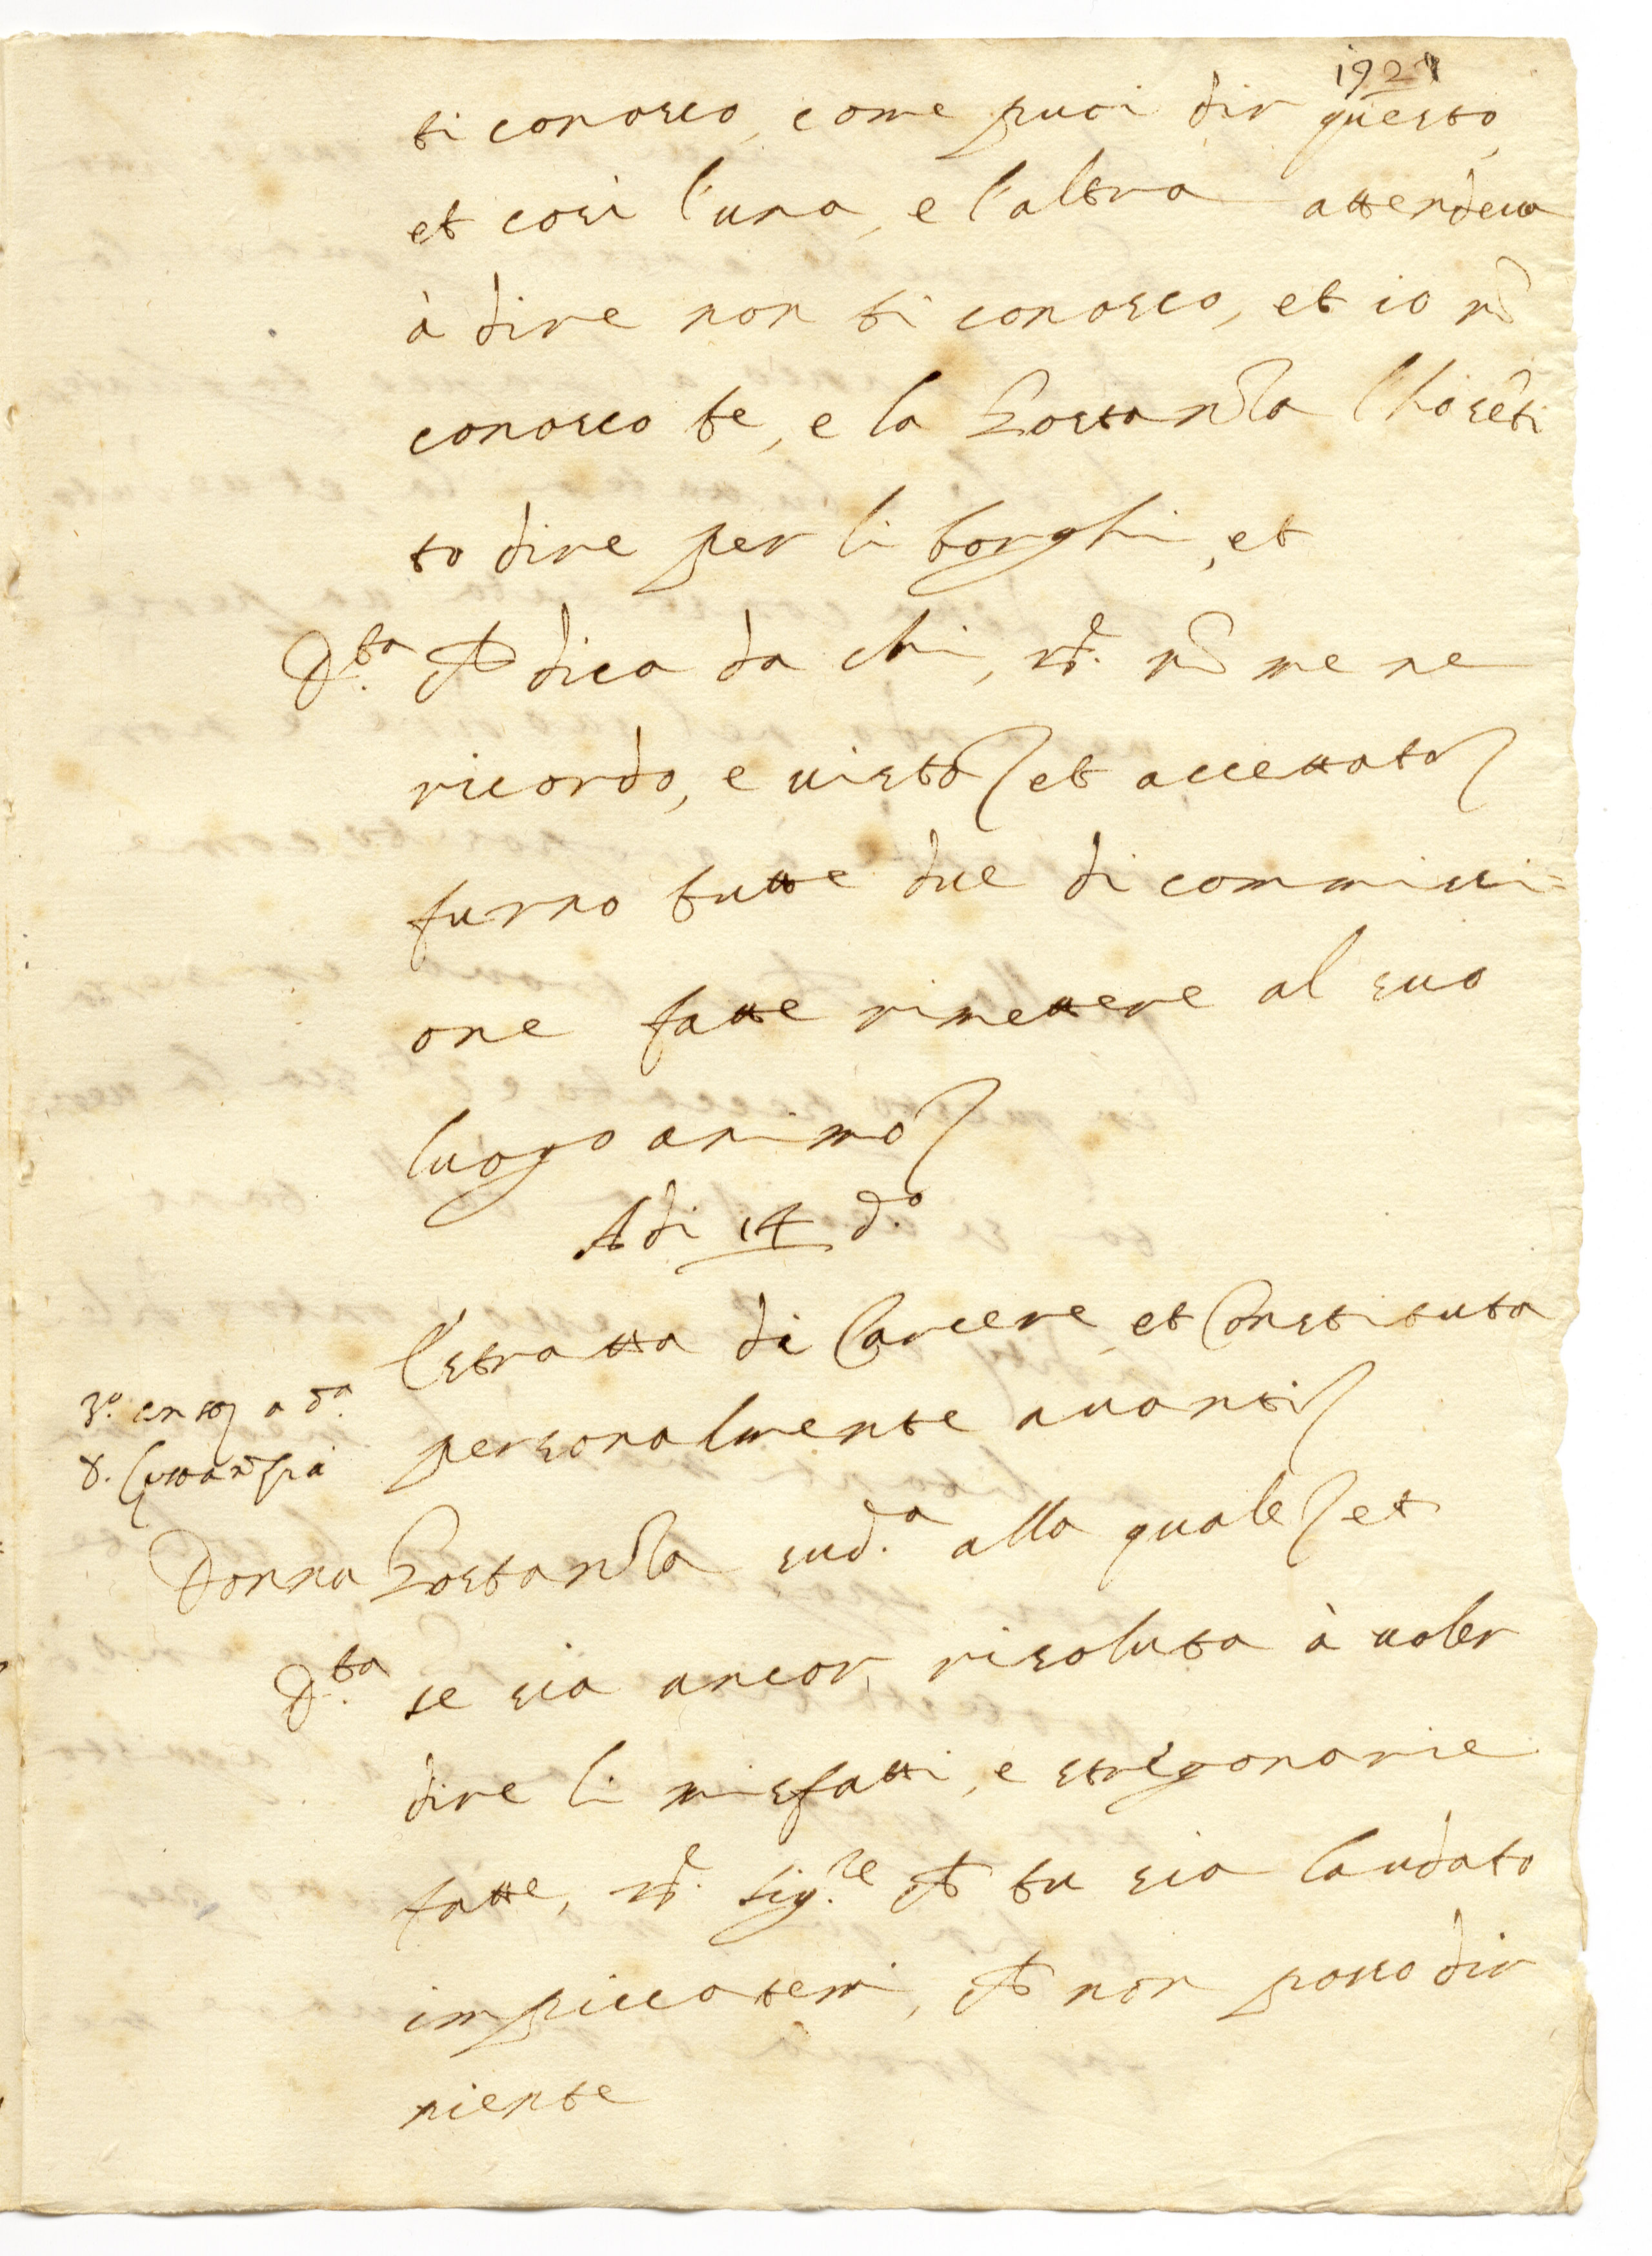 192
ti conosco, come puoi dir questo,
et così l'una, e l'altra attendeua
à dire non ti conosco, et io nõ
conosco te, e la Costanza l'ho sẽti
to dire per li borghi, et
D.ta che dica da chi, rd.e nõ me ne
ricordo, e uisto et accettato
furno tutte due di commissi=
one fatte rimettere al suo
luogo animo
Adi 14 d.o
l'estratta di Carcere, et Constituta
3.o a d.a
personalmente auanti
Donna Costanza sud.a alla quale et
D.ta se sia ancor risoluta à uoler
dire li misfatti, e stregonarie
fatte, rd.e sig.re che tu sia laudato
impiccatemi, che non posso dir
niente